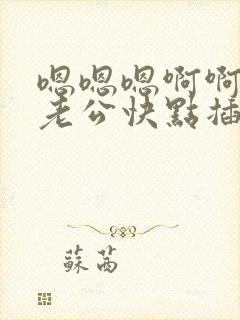 嗯嗯嗯啊啊
老公快點插
蘇茜